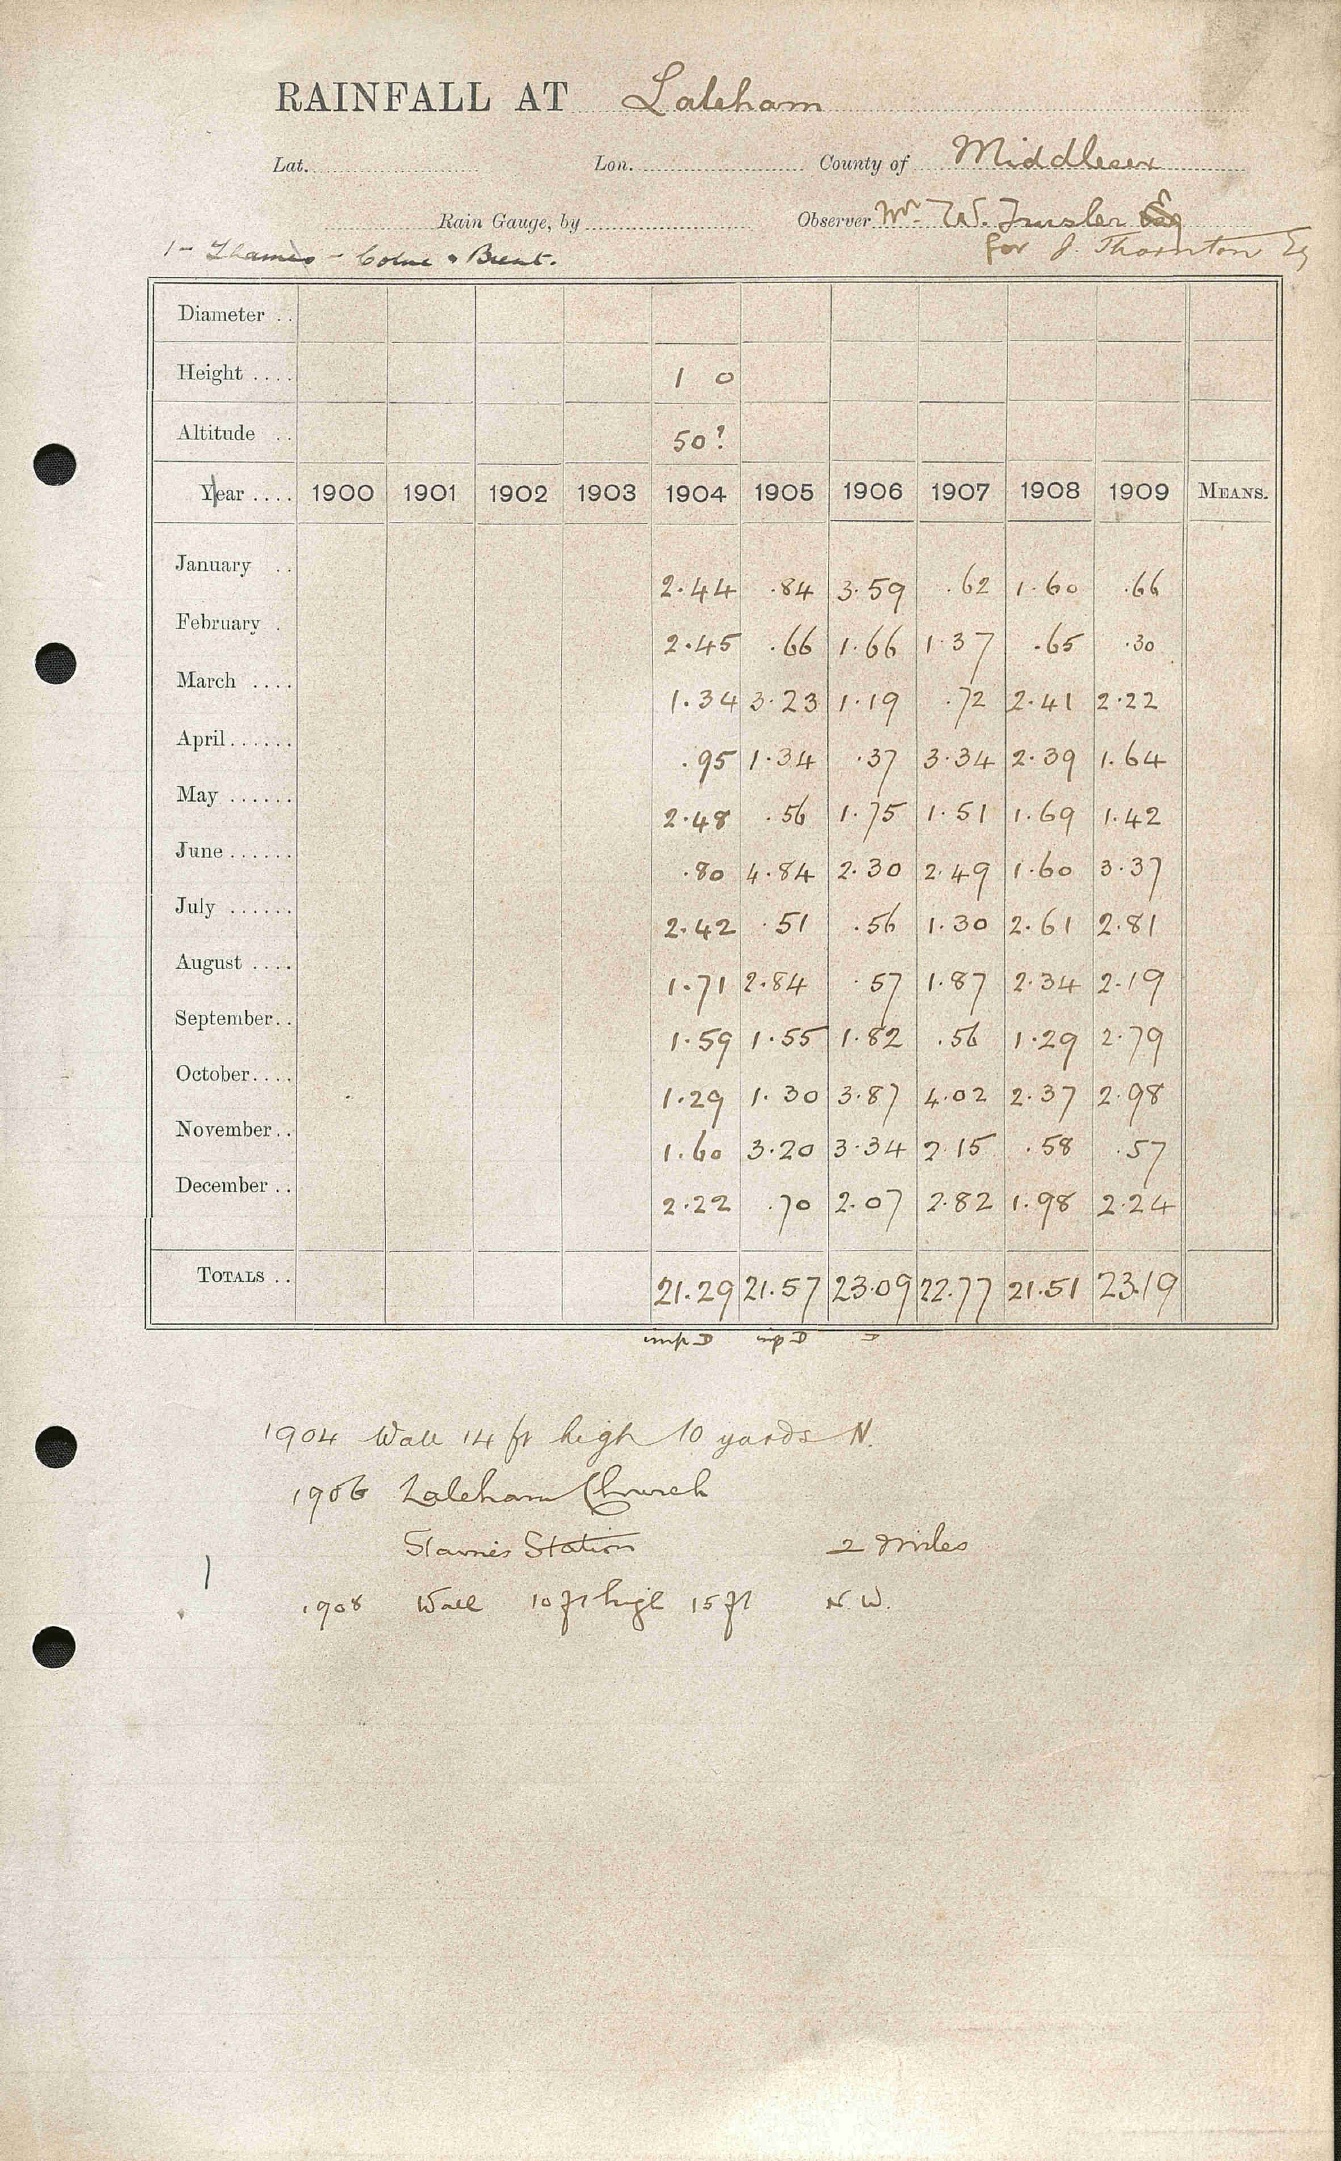 RAINFALL AT Laleham
Lat. Lon. County of Middlesex
Rain Gauge, by Observer Mr. W. Trusler
for J. Thornton Esq
1 - Thames - Colne & Brent.
Diameter ..
Height .... 1 0
Altitude .. 50?
Year .... 1900 1901 1902 1903 1904 1905 1906 1907 1908 1909 MEANS.
January .. 2.44 .84 3.59 .62 1.60 .66
February . 2.45 .66 1.66 1.37 .65 .30
March .... 1.34 3.23 1.19 .72 2.41 2.22
April ...... .95 1.34 .37 3.34 2.39 1.64
May ...... 2.48 .56 1.75 1.51 1.69 1.42
June ...... .80 4.84 2.30 2.49 1.60 3.37
July ...... 2.42 .51 .56 1.30 2.61 2.81
August .... 1.71 2.84 .57 1.87 2.34 2.19
September.. 1.59 1.55 1.82 .56 1.29 2.79
October.... 1.29 1.30 3.87 4.02 2.37 2.98
November.. 1.60 3.20 3.34 2.15 .58 .57
December .. 2.22 .70 2.07 2.82 1.98 2.24
TOTALS .. 21.29 21.57 23.09 22.77 21.51 23.19
imp D imp D D
1904 Wall 14 ft high 10 yards N.
1906 Laleham Church
Staines Station 2 miles
1908 Wall 10 ft high 15 ft N.W.